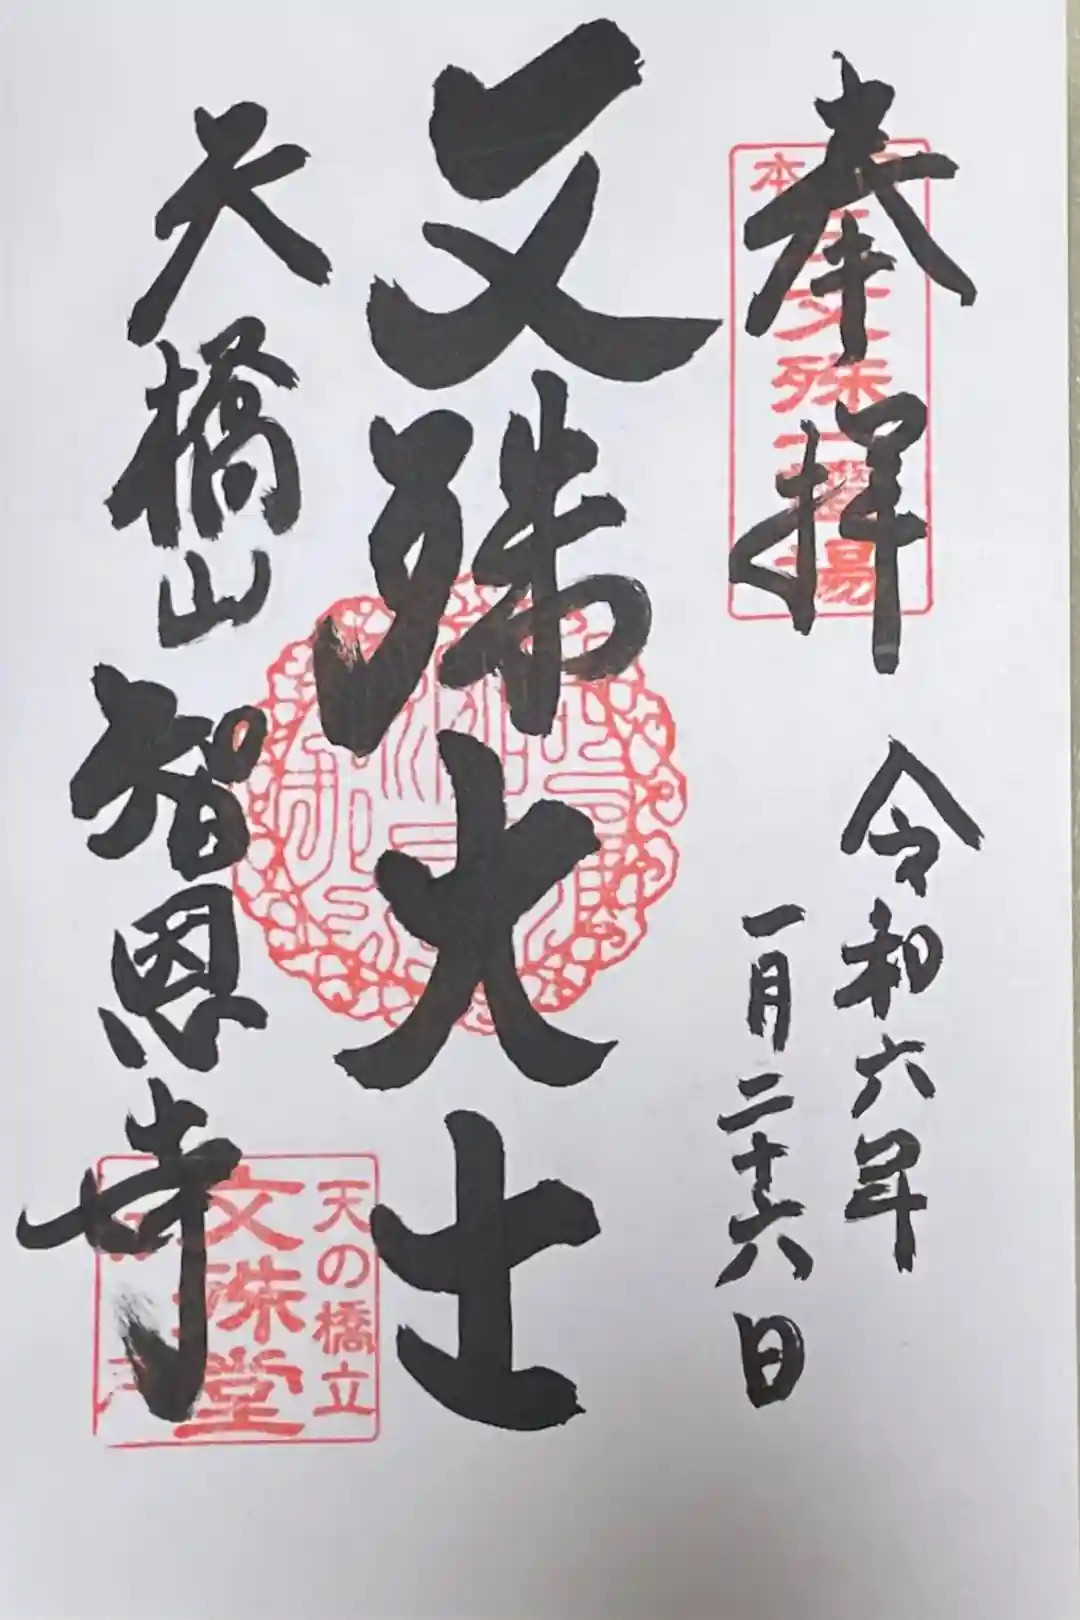 奉拝
令和六年
一月二十六日
文殊大士
天橋山
智恩寺
文殊
霊場
天の橋立
文殊堂